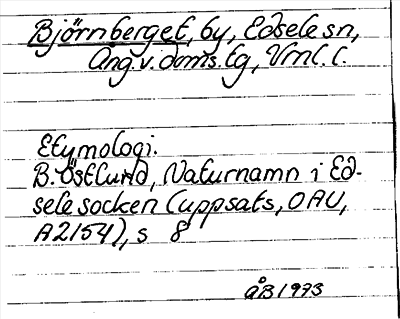 Björnberget, by, Edsele sn,
Ång.v.doms.tg, Vnl.l.
Etymologi:
B. Östlund, Naturnamn i Ed-
sele socken (uppsats, OAU,
A2154), s 8
ÅB 1973